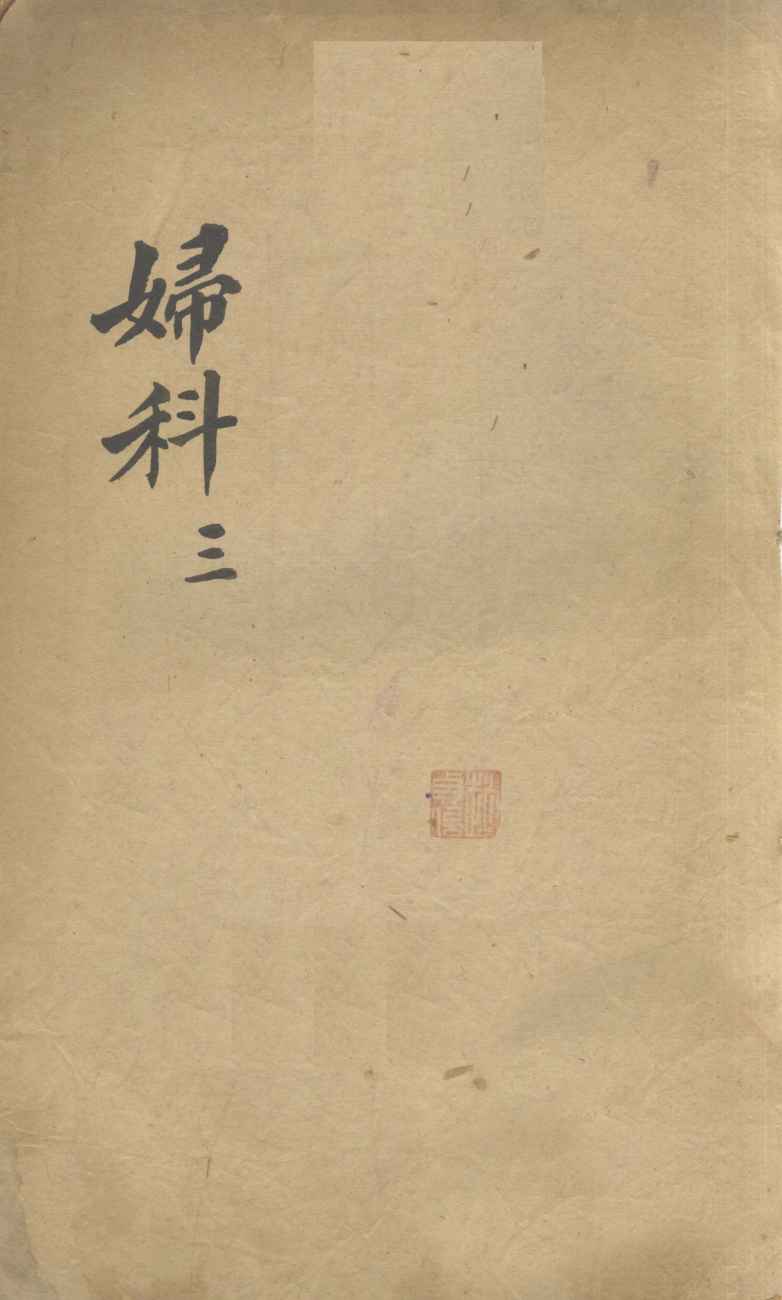 婦科三